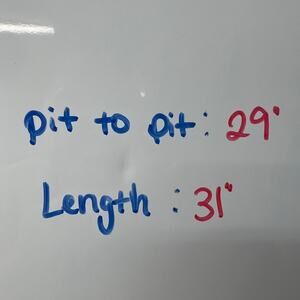 pit to pit: 29"
Length: 31"